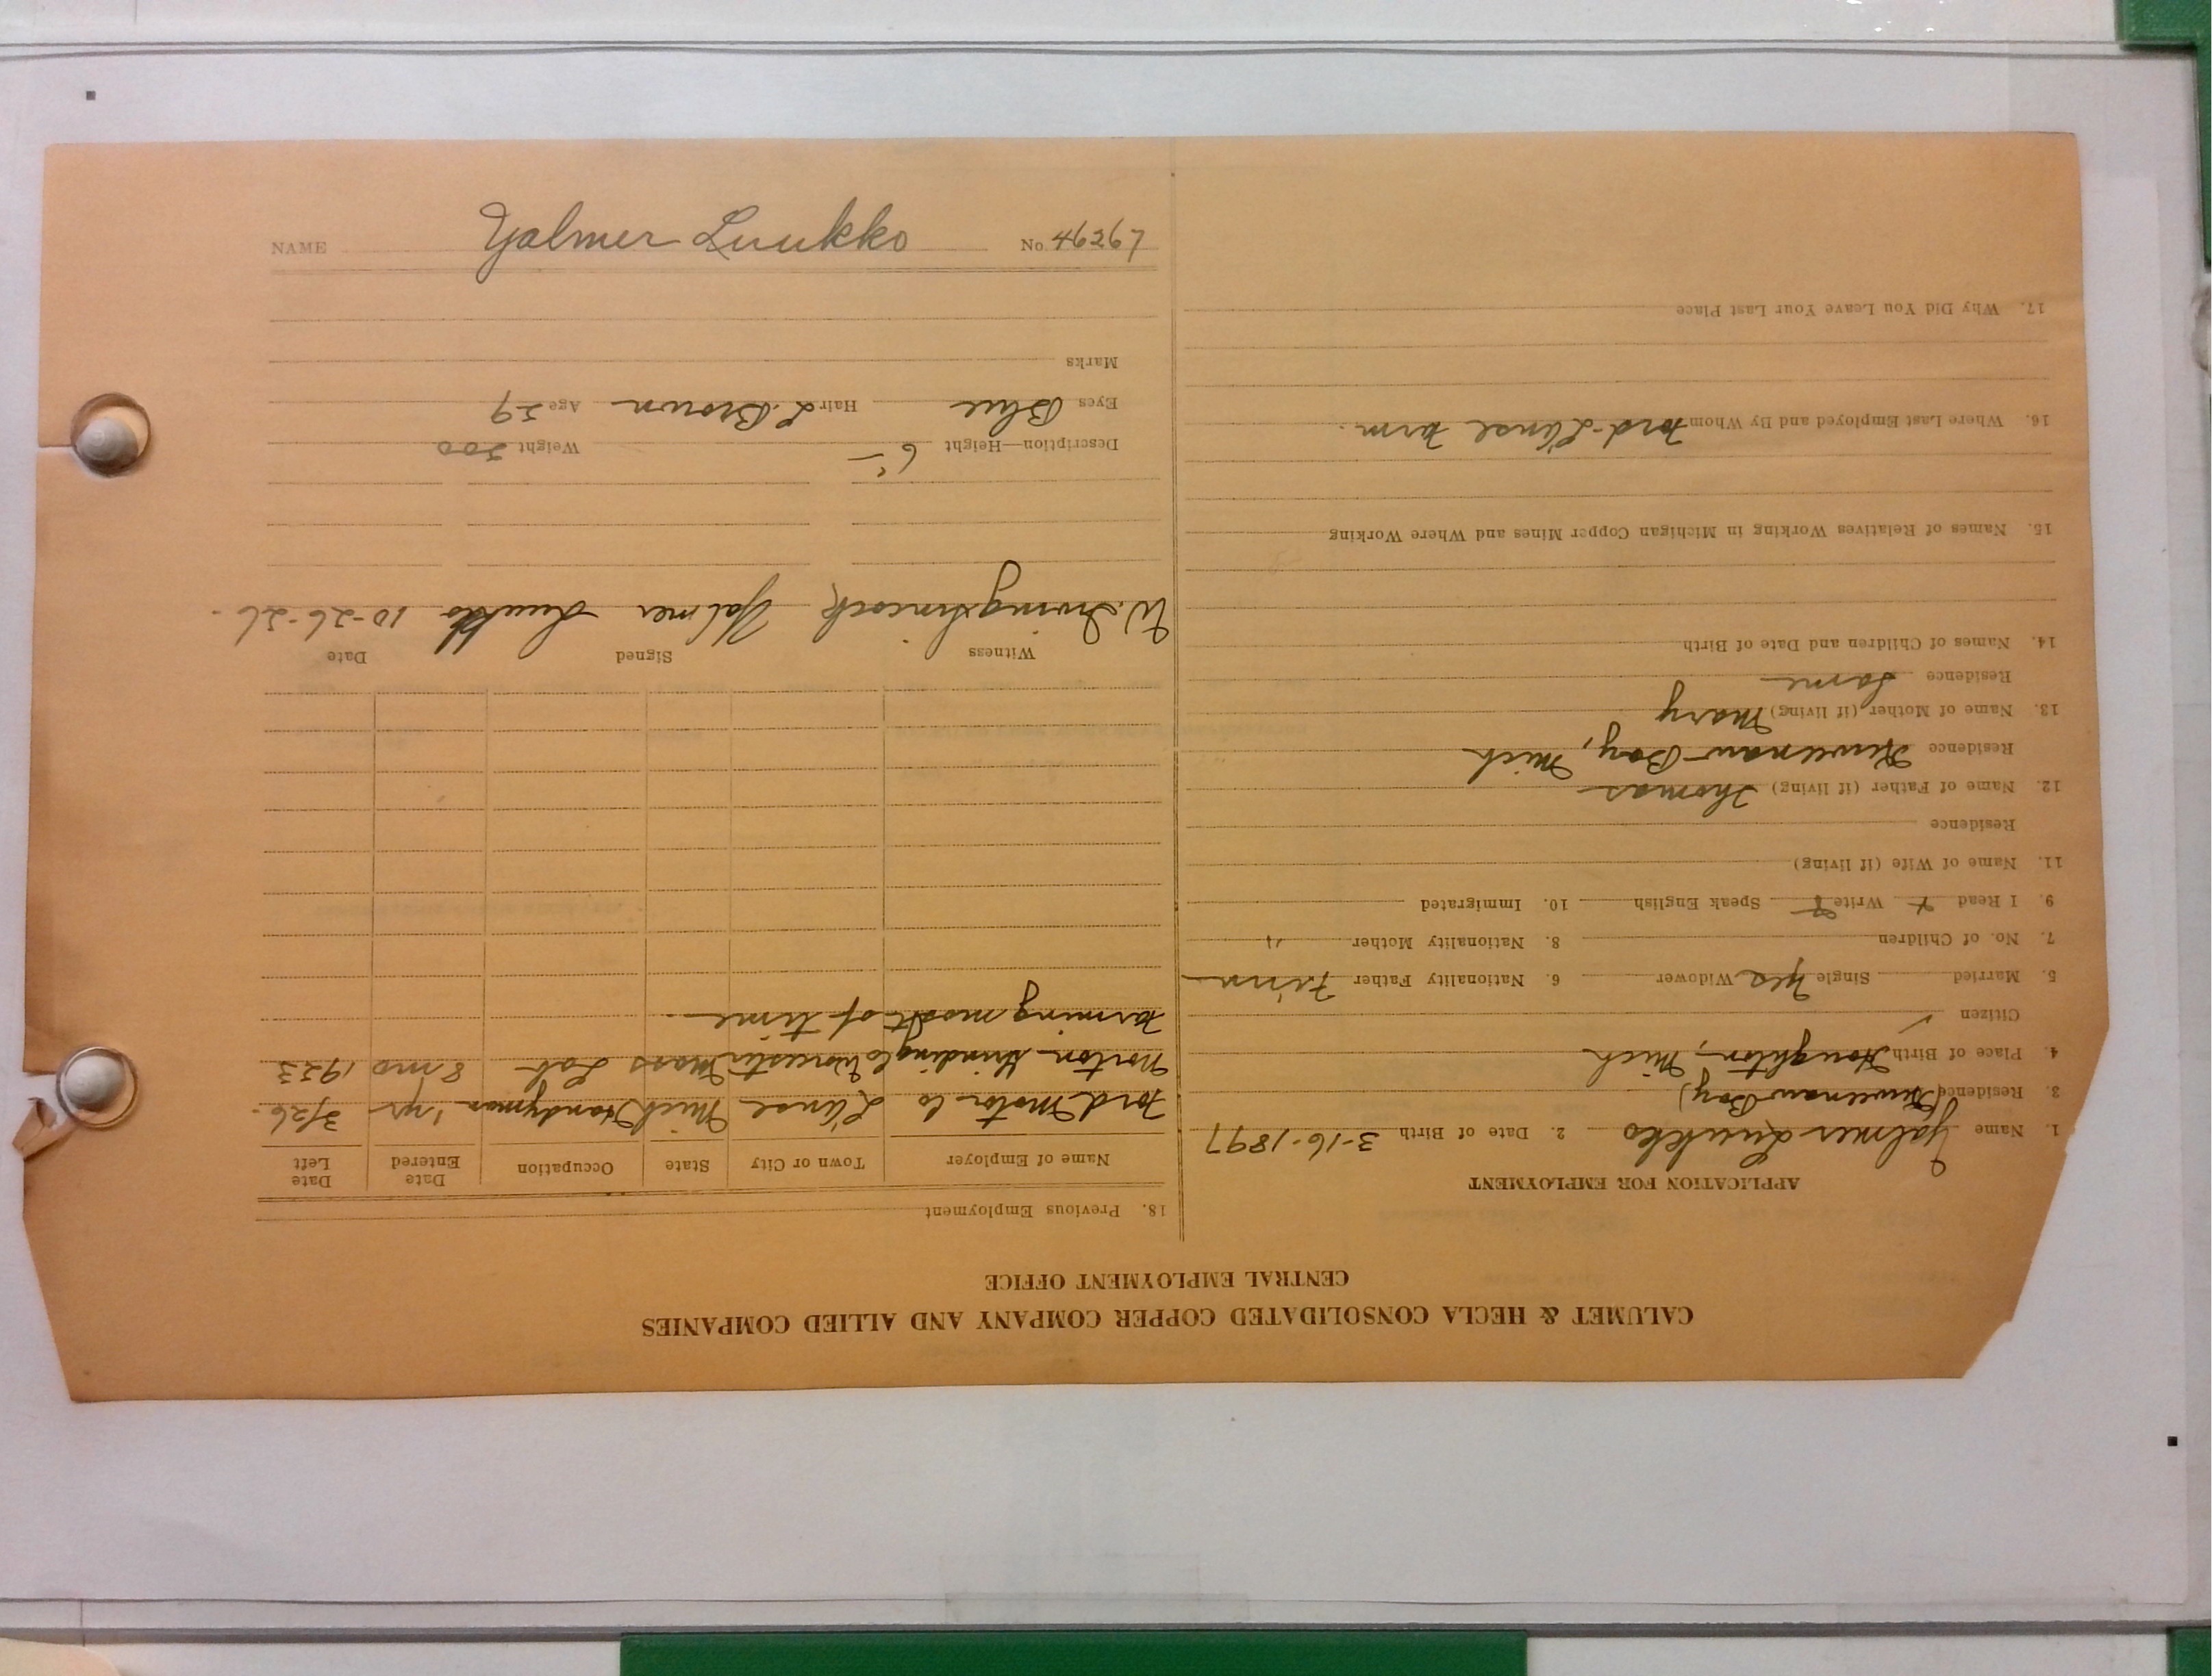 CALUMET & HECLA CONSOLIDATED COPPER COMPANY AND ALLIED COMPANIES
CENTRAL EMPLOYMENT OFFICE
APPLICATION FOR EMPLOYMENT
1. Name Yalmer Luukko 2. Date of Birth 3-16-1897
3. Residence Keweenaw Bay,
4. Place of Birth Houghton, Mich
Citizen ✓
5. Married Single Yes Widower 6. Nationality Father Finn
7. No. of Children 8. Nationality Mother "
9. I Read Write Speak English 10. Immigrated
11. Name of Wife (if living)
Residence
12. Name of Father (if living) Thomas
Residence Keweenaw Bay, Mich
13. Name of Mother (if living) Mary
Residence Same
14. Names of Children and Date of Birth
15. Names of Relatives Working in Michigan Copper Mines and Where Working
16. Where Last Employed and By Whom Ford-L'anse Farm.
17. Why Did You Leave Your Last Place
18. Previous Employment
Name of Employer Town or City State Occupation Date Entered Date Left
Ford Motor Co L'anse Mich Handyman 1 yr 3/26.
Norton Grinding Co Worcester Mass Lab 8 mo 1923
Farming most of time
Witness Signed Date
W. Irving Yalmer Luukko 10-26-26.
Description—Height 6' Weight 200
Eyes Blue Hair L. Brown Age 29
Marks
NAME Yalmer Luukko No. 46267